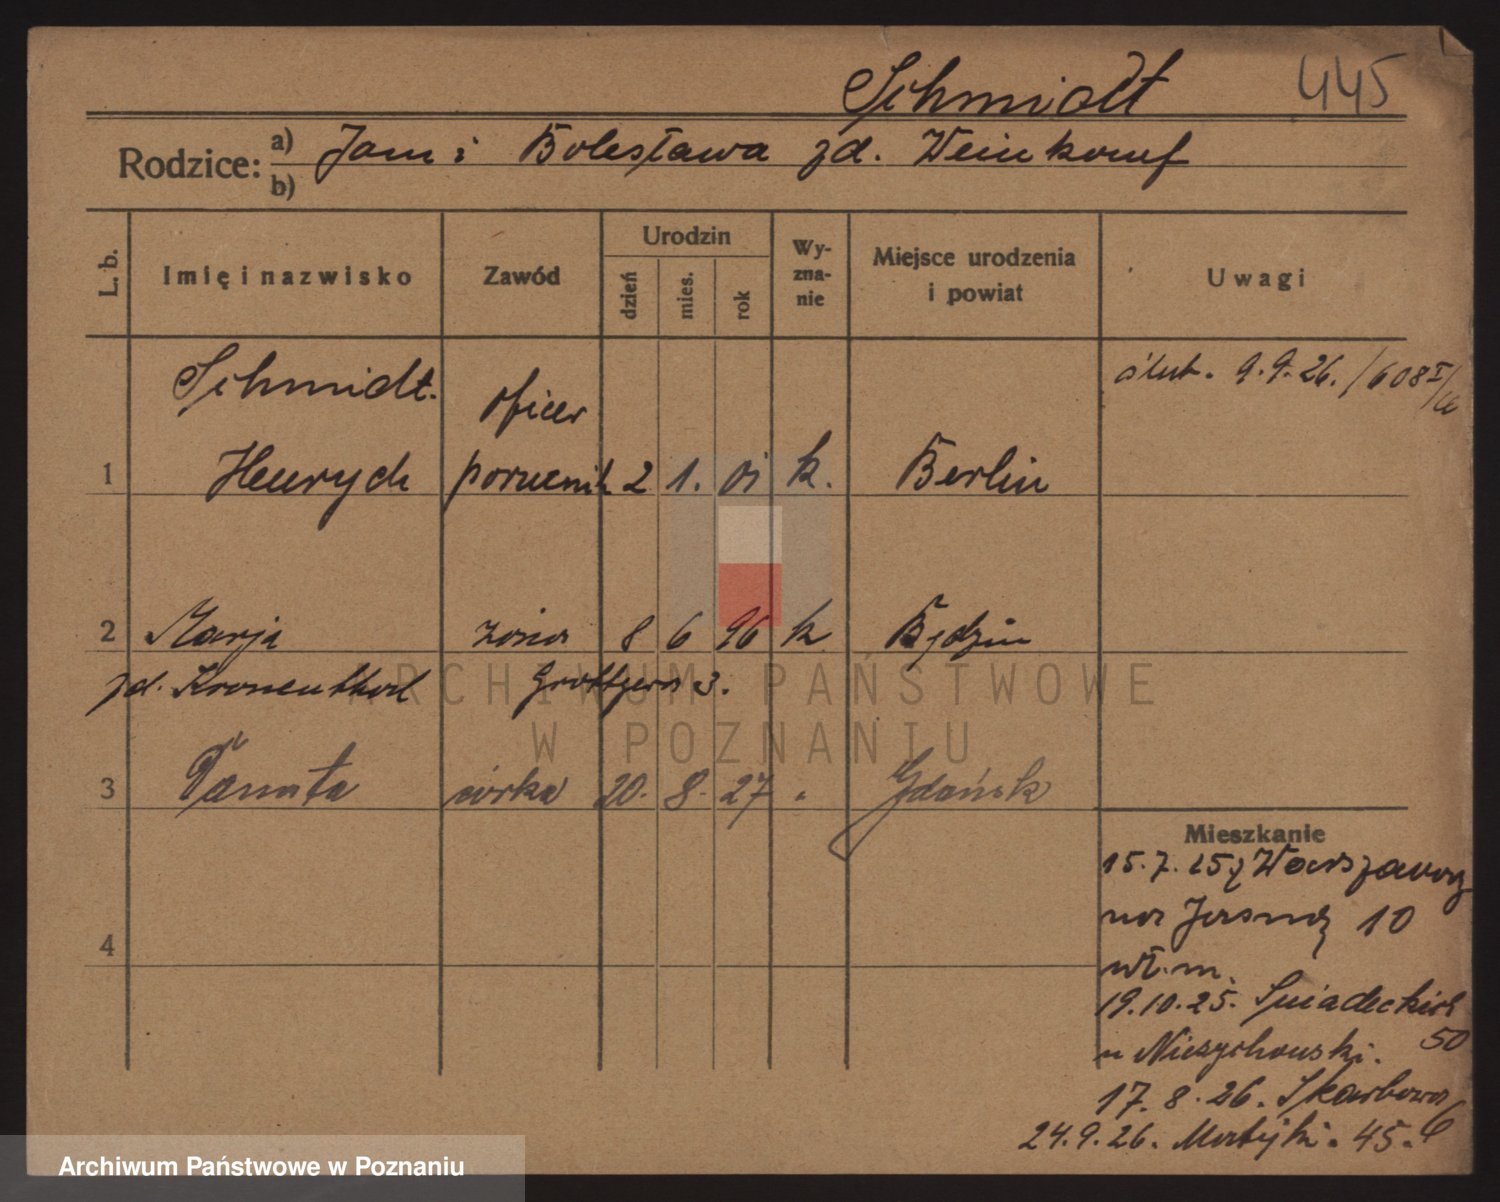 Schmidt 445
Rodzice: a) Jan i Bolesława zd.
b)
L. b. Imię i nazwisko Zawód Urodzin dzień mies. rok Wy-zna-nie Miejsce urodzenia i powiat Uwagi
Schmidt. oficer ślub. 9.9.26. /608 I/
1 Henryk porucznik 2 1. 01 k. Berlin
2 Marja żona 8 6 96 k. Będzin
zd. Kronenthal Grottgera 3.
3 Danuta córka 20. 8. 27 " Gdańsk
Mieszkanie
15.7.25 z Warszawy
na Jasną 10
4
wł. m.
19.10.25. Śniadeckich
50
u Nieżychowski.
17. 8. 26. Skarbowa
6
24.9.26. Matejki. 45.
ARCHIWUM PAŃSTWOWE
W POZNANIU
Archiwum Państwowe w Poznaniu